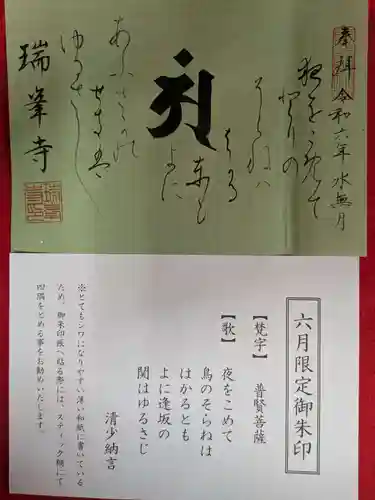 奉拝 令和六年 水無月
夜をこめて
とりの
そらねハ
はかる
とも
よに
あふさかの
せきは
ゆるさし
瑞峯寺
六月限定御朱印
【梵字】 普賢菩薩
【歌】 夜をこめて
鳥のそらねは
はかるとも
よに逢坂の
関はゆるさじ
清少納言
※とてもシワになりやすい薄い和紙に書いている
ため、御朱印帳へ貼る際には、スティック糊にて
四隅をとめる事をお勧めいたします。